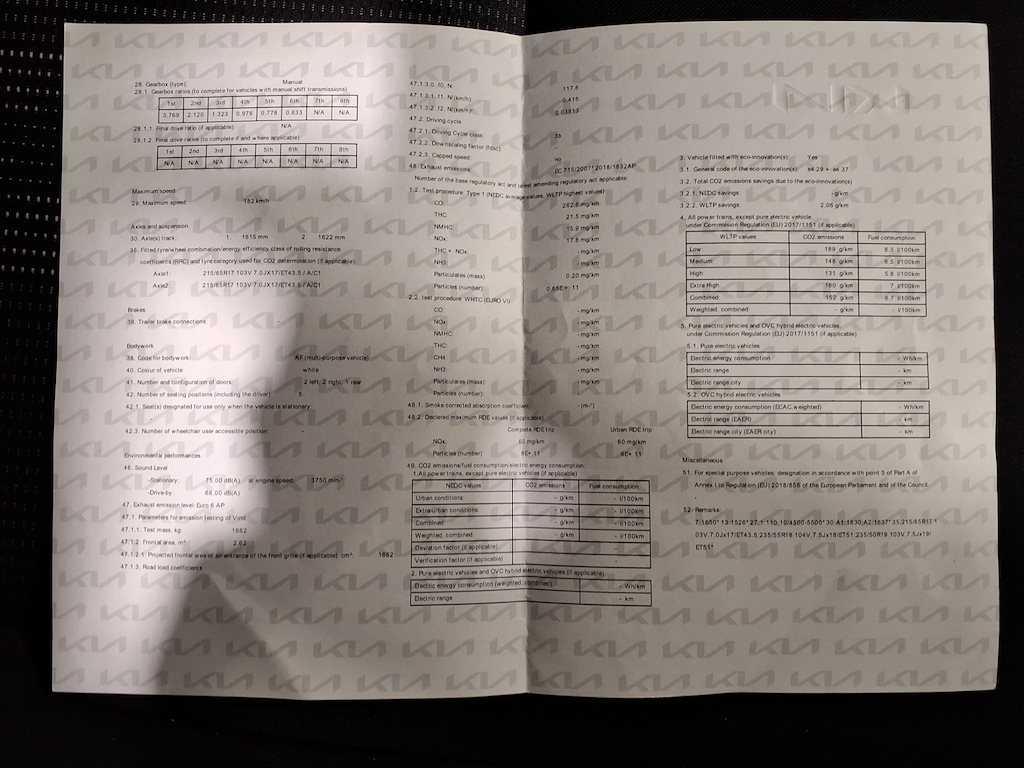 28. Gearbox (type): Manual
28.1. Gearbox ratios (to complete for vehicles with manual shift transmissions)
1st 2nd 3rd 4th 5th 6th 7th 8th
3.769 2.120 1.323 0.976 0.778 0.633 N/A N/A
28.1.1. Final drive ratio (if applicable): N/A
28.1.2. Final drive ratios (to complete if and where applicable)
1st 2nd 3rd 4th 5th 6th 7th 8th
N/A N/A N/A N/A N/A N/A N/A N/A
Maximum speed
29. Maximum speed: 182 km/h
Axles and suspension
30. Axle(s) track: 1. 1615 mm 2. 1622 mm
35. Fitted tyre/wheel combination/energy efficiency class of rolling resistance
coefficients (RRC) and tyre category used for CO2 determination (if applicable):
Axle1: 215/65R17 103V 7.0JX17/ET43.5 / A/C1
Axle2: 215/65R17 103V 7.0JX17/ET43.5 / A/C1
Brakes
36. Trailer brake connections: -
Bodywork
38. Code for bodywork: AF (multi-purpose vehicle)
40. Colour of vehicle: white
41. Number and configuration of doors: 2 left, 2 right, 1 rear
42. Number of seating positions (including the driver): 5
42.1. Seat(s) designated for use only when the vehicle is stationary: -
42.3. Number of wheelchair user accessible position: -
Environmental performances
46. Sound Level
-Stationary: 75.00 dB(A) at engine speed: 3750 min-¹
-Drive-by: 68.00 dB(A)
47. Exhaust emission level: Euro 6 AP
47.1. Parameters for emission testing of Vind
47.1.1. Test mass, kg: 1662
47.1.2. Frontal area, m²: 2.62
47.1.2.1. Projected frontal area of air entrance of the front grille (if applicable), cm²: 1662
47.1.3. Road load coefficients
47.1.3.0. f0, N: 117.6
47.1.3.1. f1, N/(km/h): 0.415
47.1.3.2. f2, N/(km/h)²: 0.03813
47.2. Driving cycle
47.2.1. Driving Cycle class: 3b
47.2.2. Downscaling factor (fdsc): -
47.2.3. Capped speed: no
48. Exhaust emissions: EC 715/2007*2018/1832AP
Number of the base regulatory act and latest amending regulatory act applicable:
1.2. Test procedure: Type 1 (NEDC average values, WLTP highest values)
CO: 262.6 mg/km
THC: 21.5 mg/km
NMHC: 15.9 mg/km
NOx: 17.8 mg/km
THC + NOx: -
NH3: -
Particulates (mass): 0.20 mg/km
Particles (number): 0.65E+ 11
2.2. test procedure: WHTC (EURO VI)
CO: - mg/km
NOx: - mg/km
NMHC: - mg/km
THC: - mg/km
CH4: - mg/km
NH3: - mg/km
Particulates (mass): - mg/km
Particles (number): -
48.1. Smoke corrected absorption coefficient: - (m-¹)
48.2. Declared maximum RDE values (if applicable)
Complete RDE trip Urban RDE trip
NOx: 60 mg/km 60 mg/km
Particles (number): 6E+ 11 6E+ 11
49. CO2 emissions/fuel consumption/electric energy consumption:
1. All power trains, except pure electric vehicles (if applicable)
NEDC values CO2 emissions Fuel consumption
Urban conditions: - g/km - l/100km
Extra-urban conditions: - g/km - l/100km
Combined: - g/km - l/100km
Weighted, combined: - g/km - l/100km
Deviation factor (if applicable) -
Verification factor (if applicable) -
2. Pure electric vehicles and OVC hybrid electric vehicles (if applicable)
Electric energy consumption (weighted, combined) - Wh/km
Electric range - km
3. Vehicle fitted with eco-innovation(s): Yes
3.1. General code of the eco-innovation(s): e4 29 + e4 37
3.2. Total CO2 emissions savings due to the eco-innovation(s)
3.2.1. NEDC savings: - g/km
3.2.2. WLTP savings: 2.06 g/km
4. All power trains, except pure electric vehicle,
under Commission Regulation (EU) 2017/1151 (if applicable)
WLTP values CO2 emissions Fuel consumption
Low 189 g/km 8.3 l/100km
Medium: 148 g/km 6.5 l/100km
High: 131 g/km 5.8 l/100km
Extra High: 160 g/km 7 l/100km
Combined: 152 g/km 6.7 l/100km
Weighted, combined: - g/km - l/100km
5. Pure electric vehicles and OVC hybrid electric vehicles,
under Commission Regulation (EU) 2017/1151 (if applicable)
5.1. Pure electric vehicles
Electric energy consumption: - Wh/km
Electric range - km
Electric range city - km
5.2. OVC hybrid electric vehicles
Electric energy consumption (ECAC,weighted) - Wh/km
Electric range (EAER) - km
Electric range city (EAER city) - km
Miscellaneous
51. For special purpose vehicles: designation in accordance with point 5 of Part A of
Annex I to Regulation (EU) 2018/858 of the European Parliament and of the Council:
-
52. Remarks
7;1850* 13;1526* 27.1 110,10/4500-5500* 30 A1;1630,A2;1637* 35;215/65R17 1
03V,7.0Jx17/ET43.5;235/55R18 104V,7.5Jx18/ET51;235/50R19 103V,7.5Jx19/
ET51*